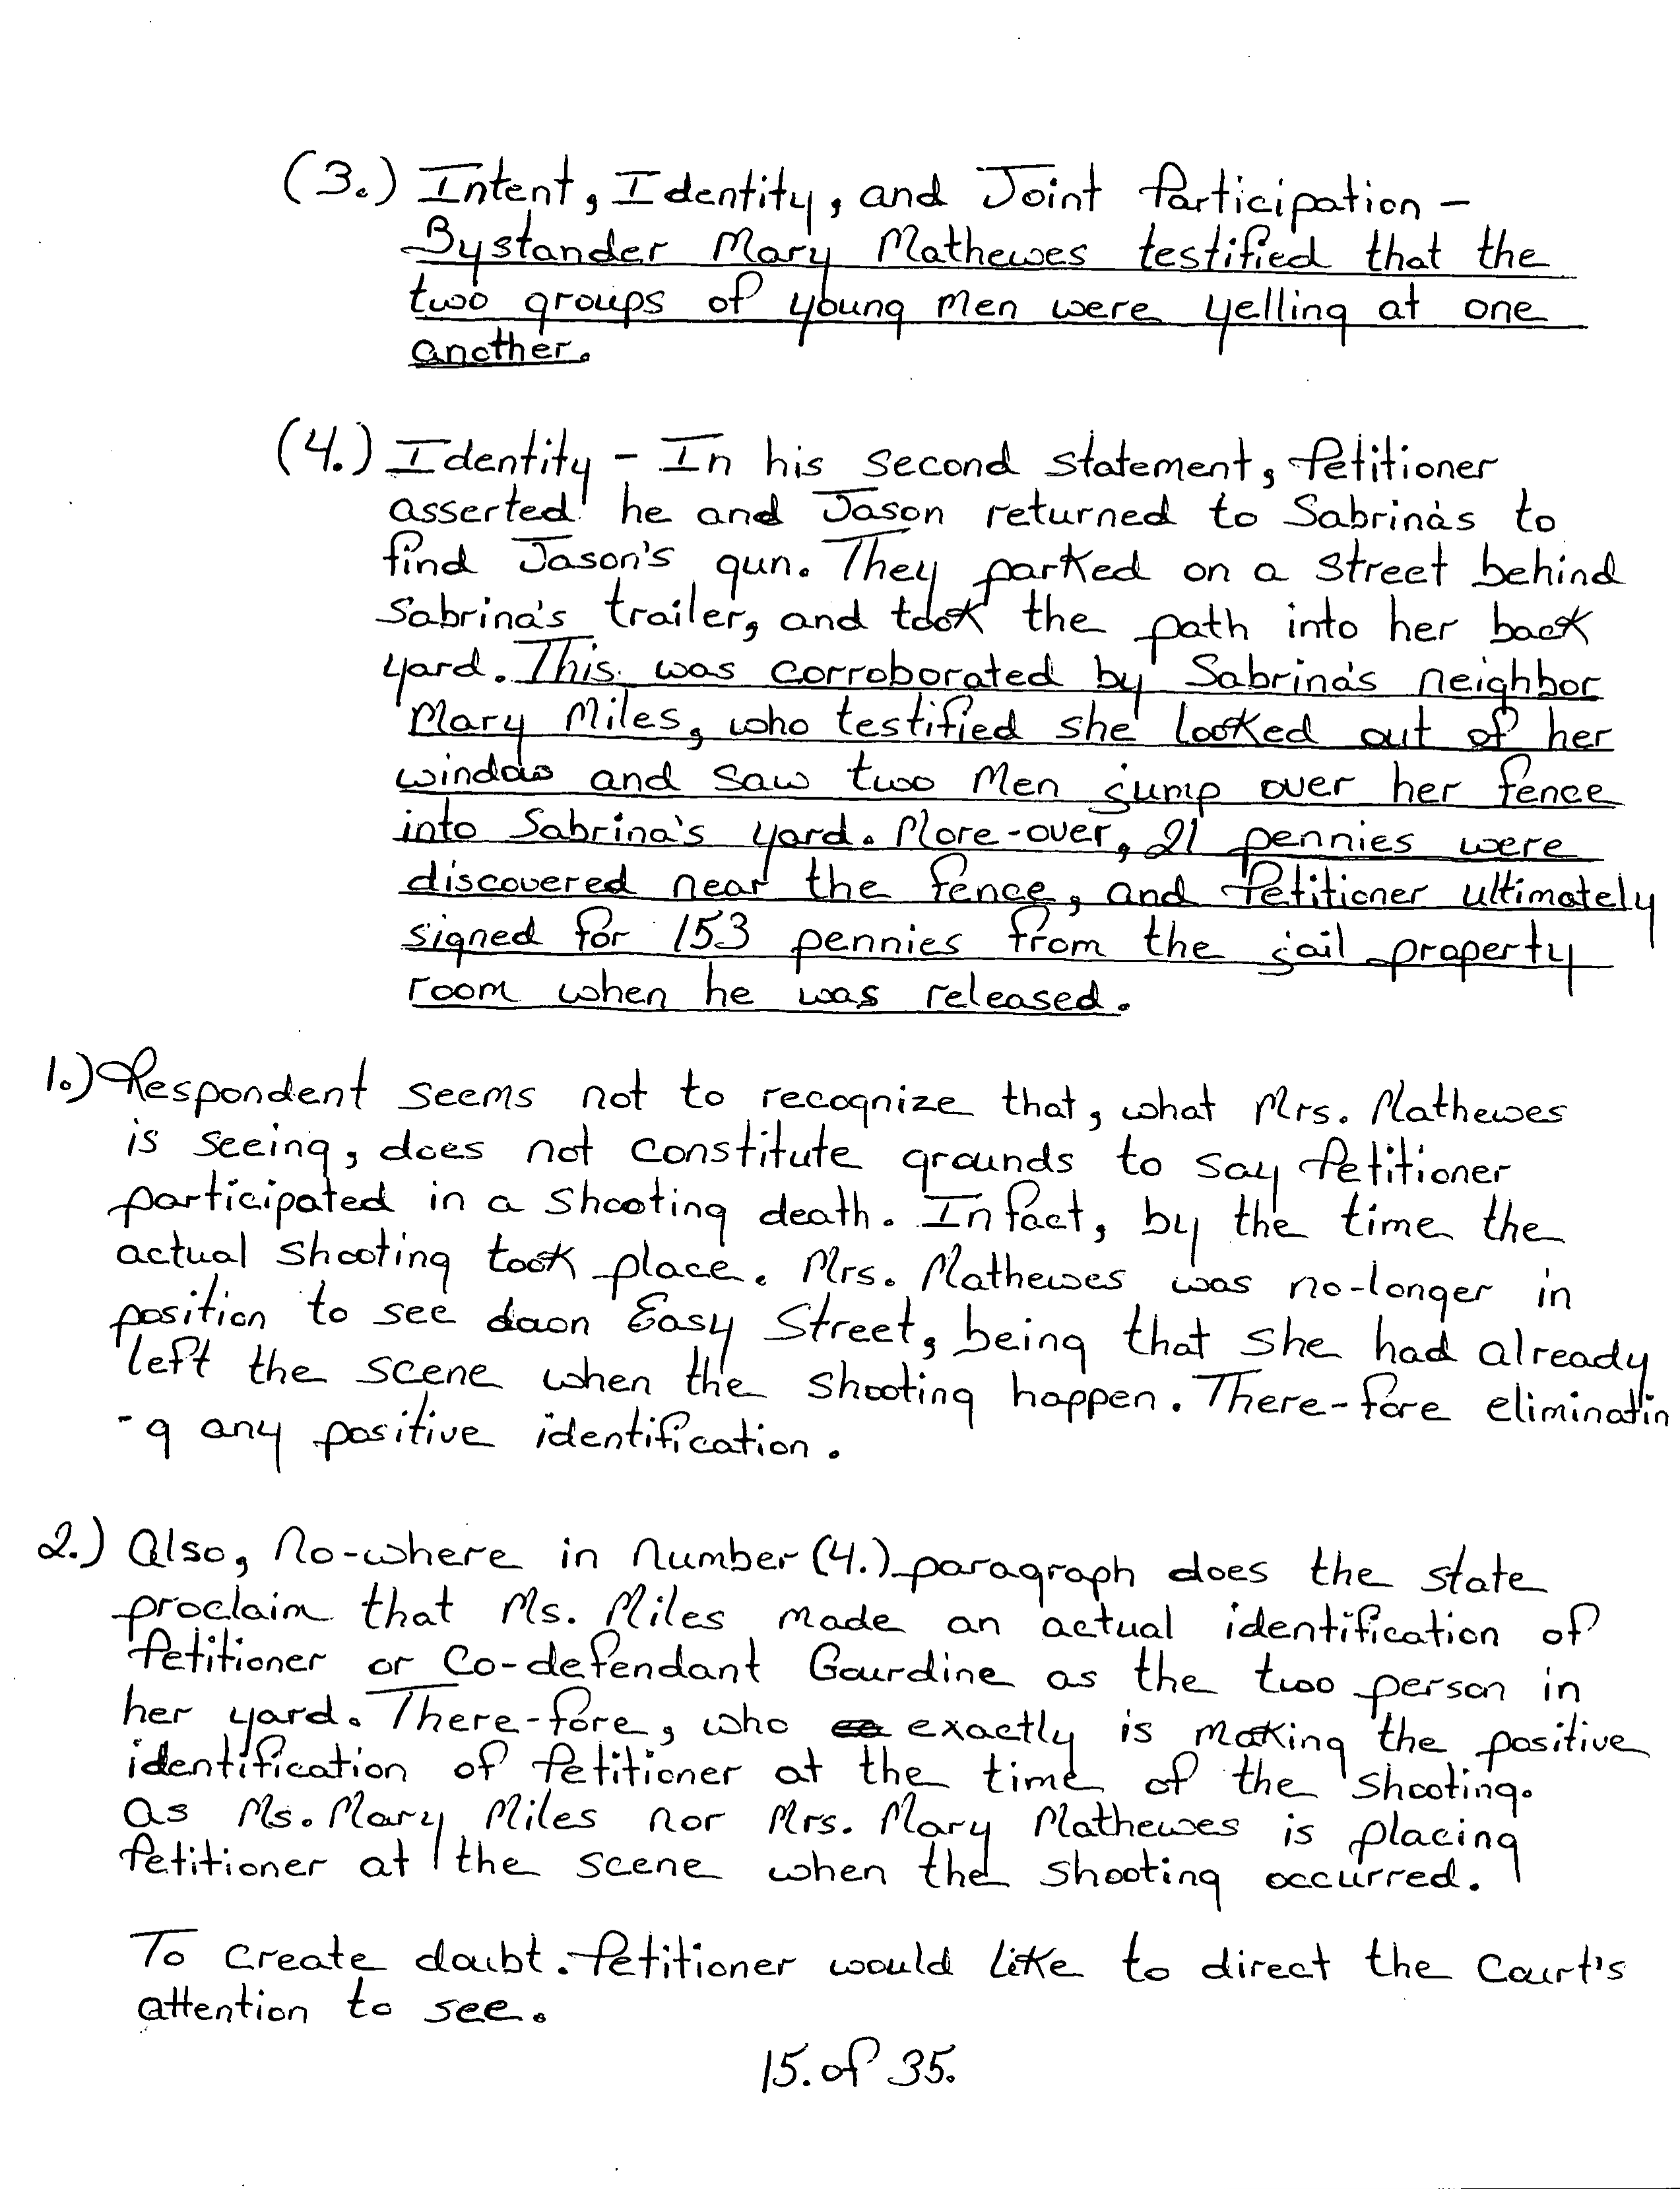 (3.) Intent, Identity, and Joint Participation -
Bystander Mary Mathewes testified that the
two groups of young men were yelling at one
another.
(4.) Identity - In his second statement, Petitioner
asserted he and Jason returned to Sabrina's to
find Jason's gun. They parked on a street behind
Sabrina's trailer, and took the path into her back
yard. This was corroborated by Sabrina's neighbor
Mary Miles, who testified she looked out of her
window and saw two men jump over her fence
into Sabrina's yard. More-over, 21 pennies were
discovered near the fence, and Petitioner ultimately
signed for 153 pennies from the jail property
room when he was released.
1.) Respondent seems not to recognize that, what Mrs. Mathewes
is seeing, does not constitute grounds to say Petitioner
participated in a shooting death. Infact, by the time the
actual shooting took place. Mrs. Mathewes was no-longer in
position to see down Easy Street, being that she had already
left the scene when the shooting happen. There-fore eliminatin
-g any positive identification.
2.) Also, No-where in number (4.) paragraph does the state
proclaim that Ms. Miles made an actual identification of
Petitioner or Co-defendant Gourdine as the two person in
her yard. There-fore, who exactly is making the positive
identification of Petitioner at the time of the shooting.
as Ms. Mary Miles nor Mrs. Mary Mathewes is placing
Petitioner at the scene when the shooting occurred.
To create doubt. Petitioner would like to direct the Court's
attention to see.
15. of 35.